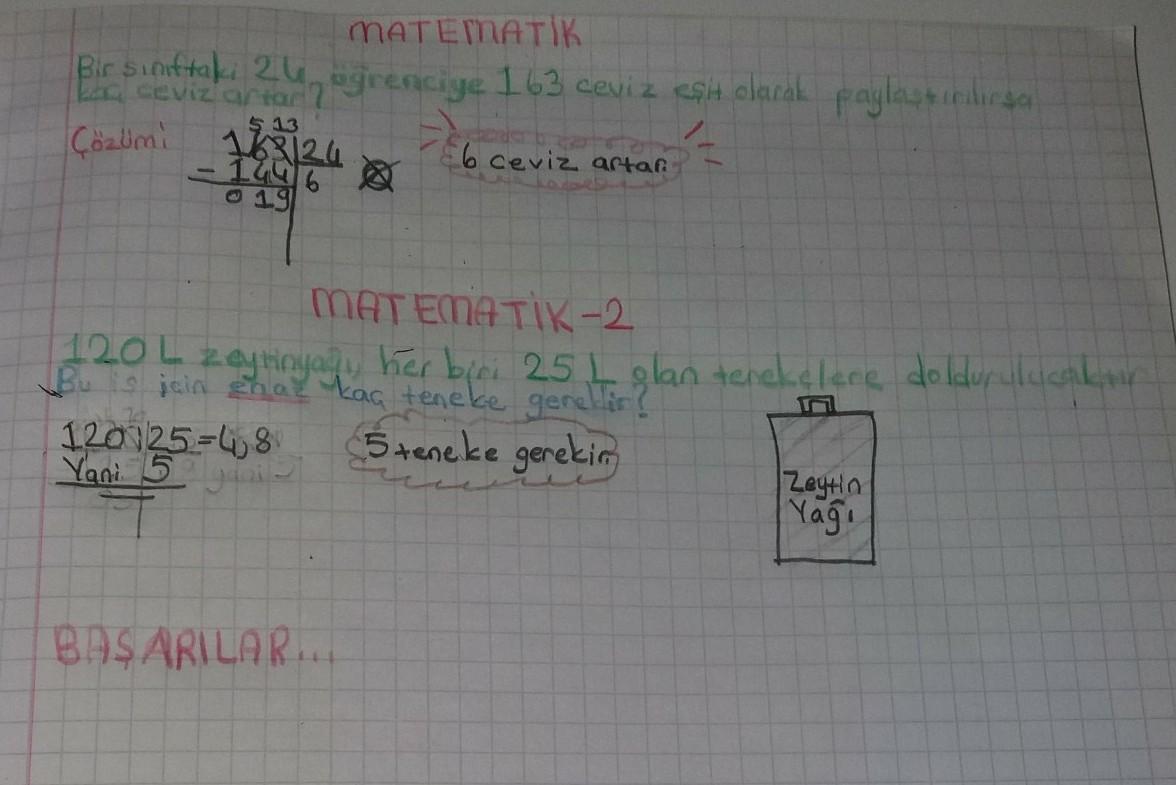 MATEMATİK
Bir sınıftaki 24 öğrenciye 163 ceviz eşit olarak paylaştırılırsa
kaç ceviz artar?
Çözümi
5 13
163 24
- 144 6
019
6 ceviz artar.
MATEMATİK-2
120 L zeytinyağı, her biri 25 L olan tenekelere doldurulucaktır
Bu iş için enaz kaç teneke gerekir?
120 25 = 4,8
Yani 5
5 teneke gerekir
Zeytin
Yağı
BAŞARILAR...